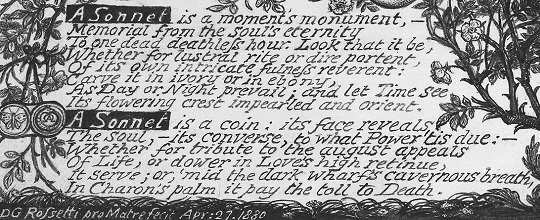 A Sonnet is a moment's monument,—
Memorial from the soul's eternity
To one dead deathless hour. Look that it be,
Whether for lustral rite or dire portent,
Of its own intricate fulness reverent:
Carve it in ivory or in ebony,
As Day or Night prevail; and let Time see
Its flowering crest impearled and orient.
A Sonnet is a coin: its face reveals
The soul,—its converse, to what Power 'tis due:—
Whether for tribute to the august appeals
Of Life, or dower in Love's high retinue,
It serve; or, 'mid the dark wharf's cavernous breath,
In Charon's palm it pay the toll to Death.
DG Rossetti pro Matre fecit Apr: 27. 1880